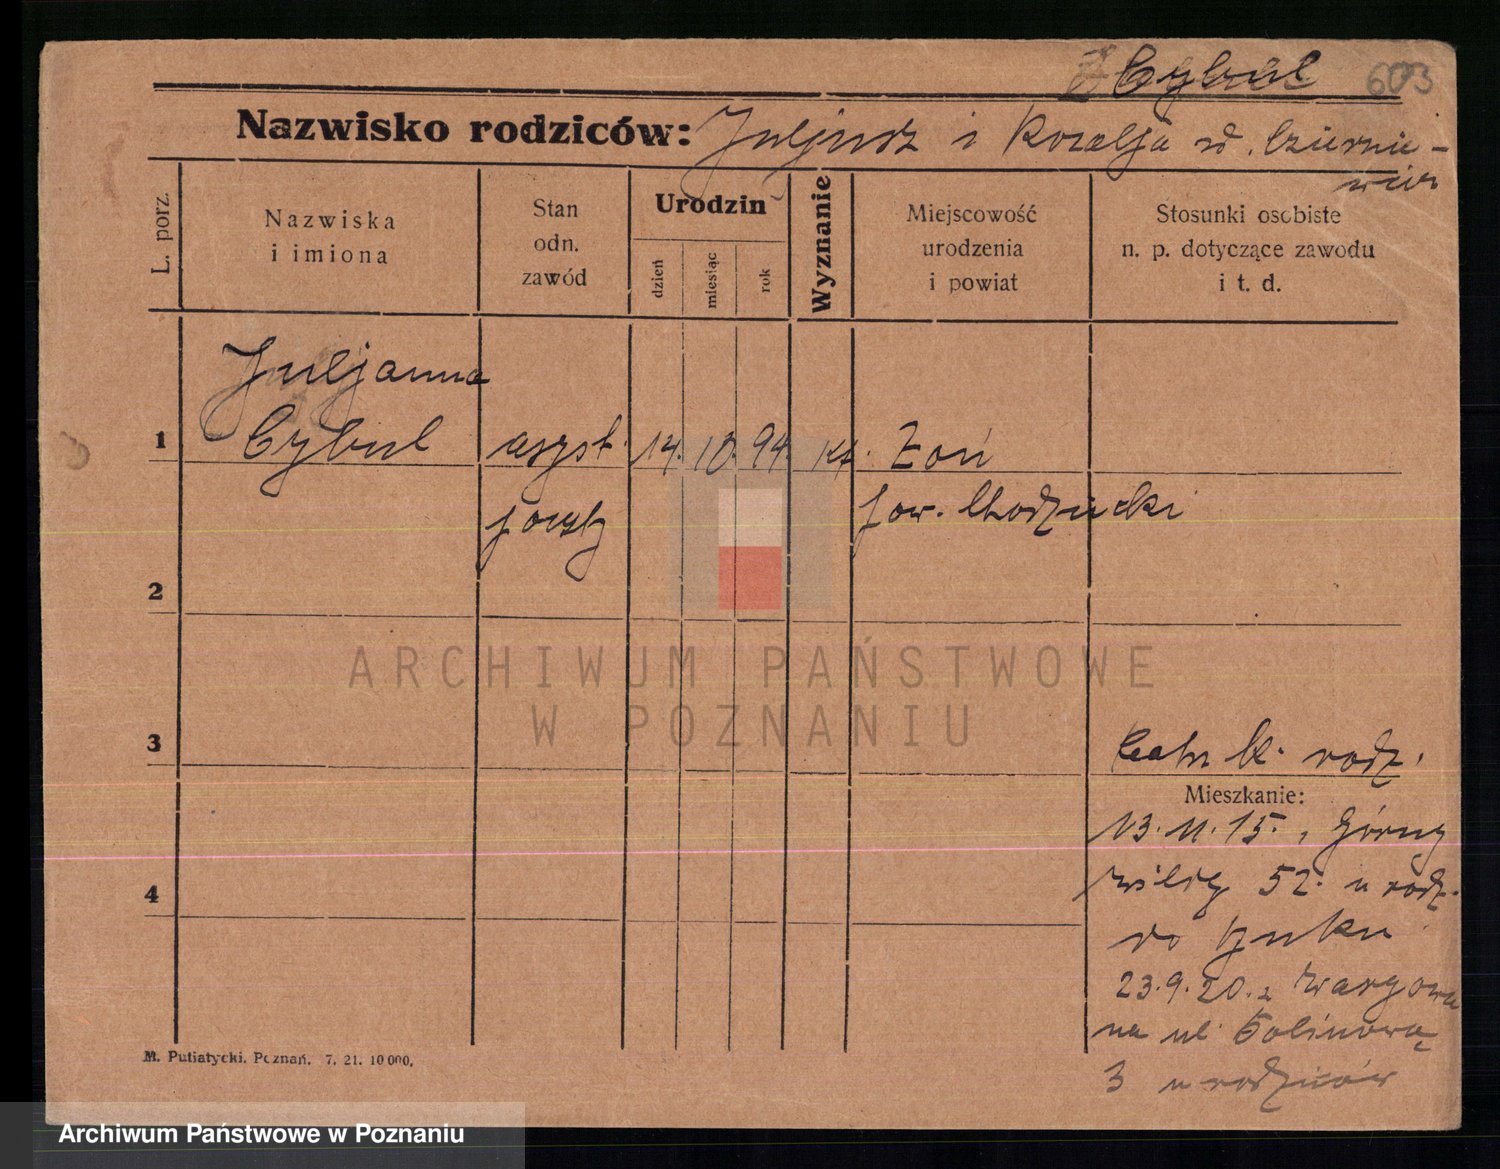 Cybul 603
Nazwisko rodziców: Juljusz i Rozalja z d. Cziernie-
wicz
L. porz.
Nazwiska
i imiona
Stan
odn.
zawód
Urodzin
dzień
miesiąc
rok
Wyznanie
Miejscowość
urodzenia
i powiat
Stosunki osobiste
n. p. dotyczące zawodu
i t. d.
Juljanna
1 Cybul asyst. 14. 10. 94. kt. Żoń
poczty pow. Chodzieski
2
ARCHIWUM PAŃSTWOWE
W POZNANIU
3
rodz.
Mieszkanie:
13. 11. 15. , Górny
Wildy 52. u rodz.
4
do
23. 9. 20. z Wargowa
na ul.
3 u rodziców
M. Putiatycki. Poznań. 7. 21. 10 000.
Archiwum Państwowe w Poznaniu